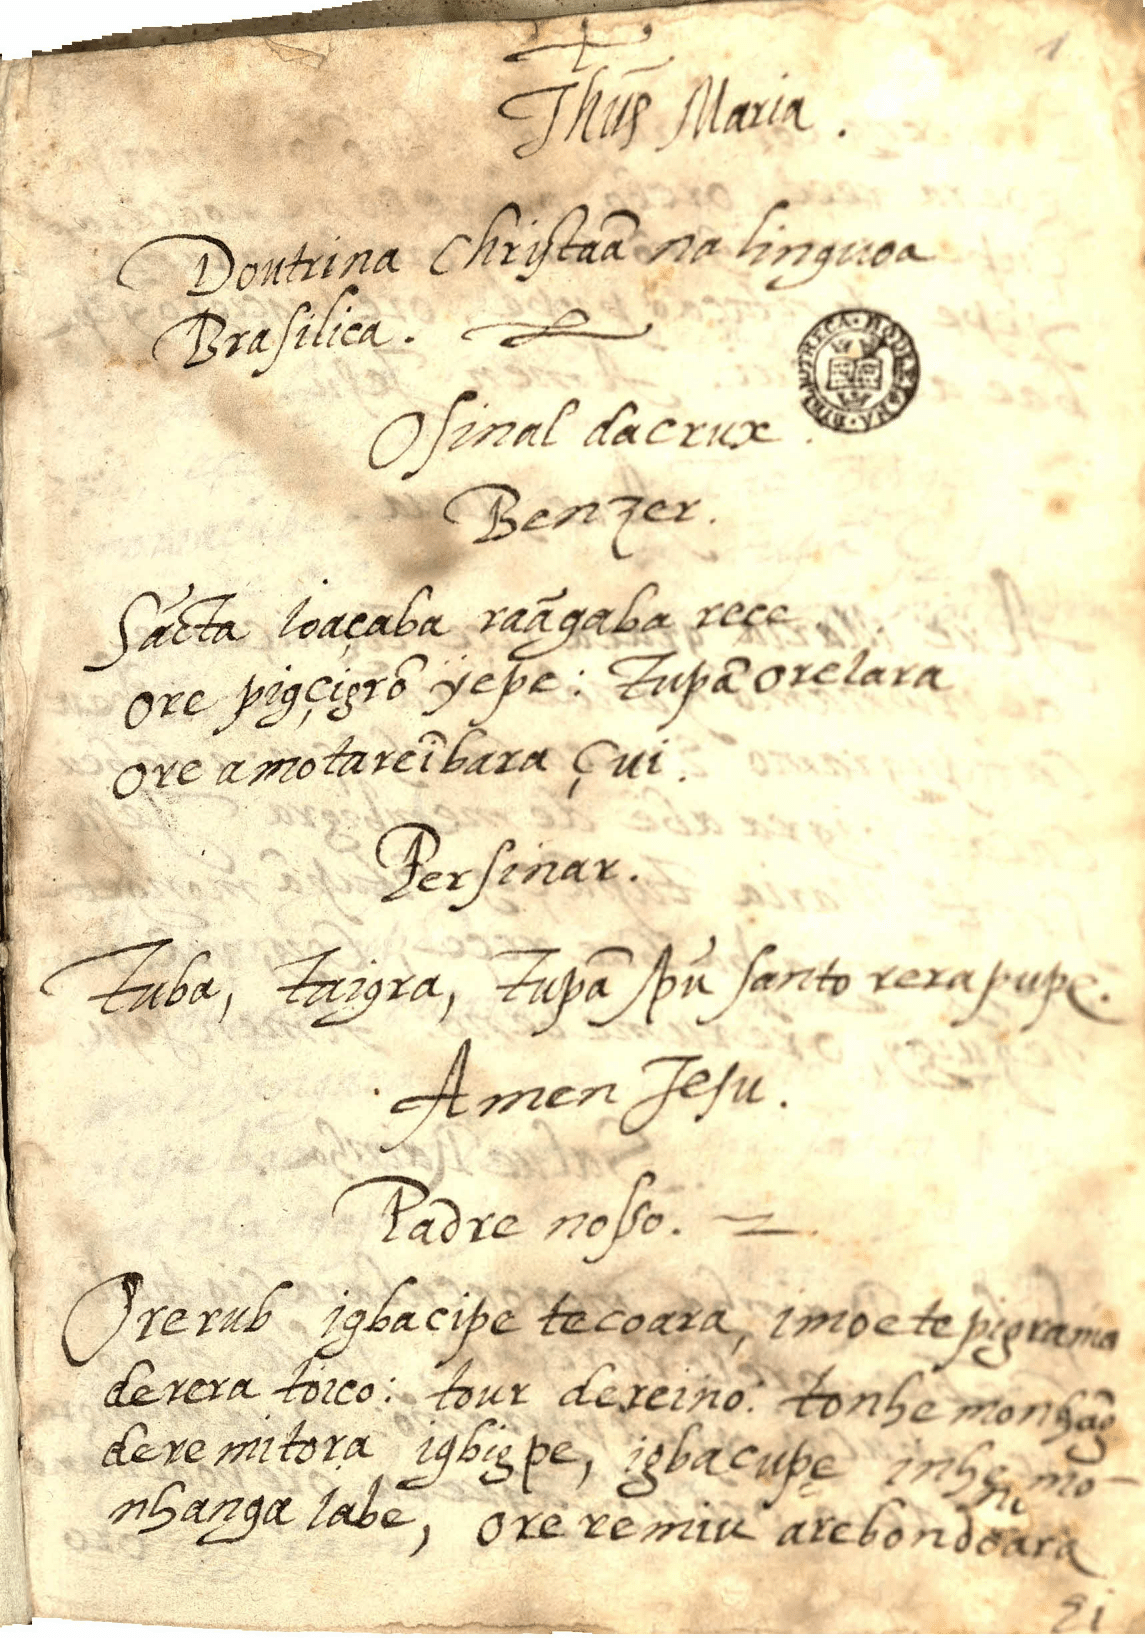 1
Jhũs Maria.
Doutrina Christaã na linguoa
Brasilica.
O sinal da crux
Benzer.
Sácta ioaçaba raãgaba rece
ore pigçigrõ ÿepe: Tupã oreIara
ore amotareĩbara çui.
Persinar.
Tuba, Taigra, Tupã spũ santo rera pupe.
Amen Jesu.
Padre nosso.
Orerub igbacipe tecoara, imoete pigrama
derera toico: tour dereino: tonhe monhãg
deremitora igbigpe, igbacupe inhemo-
nhanga Iabe, ore remiu arebondoara
ei